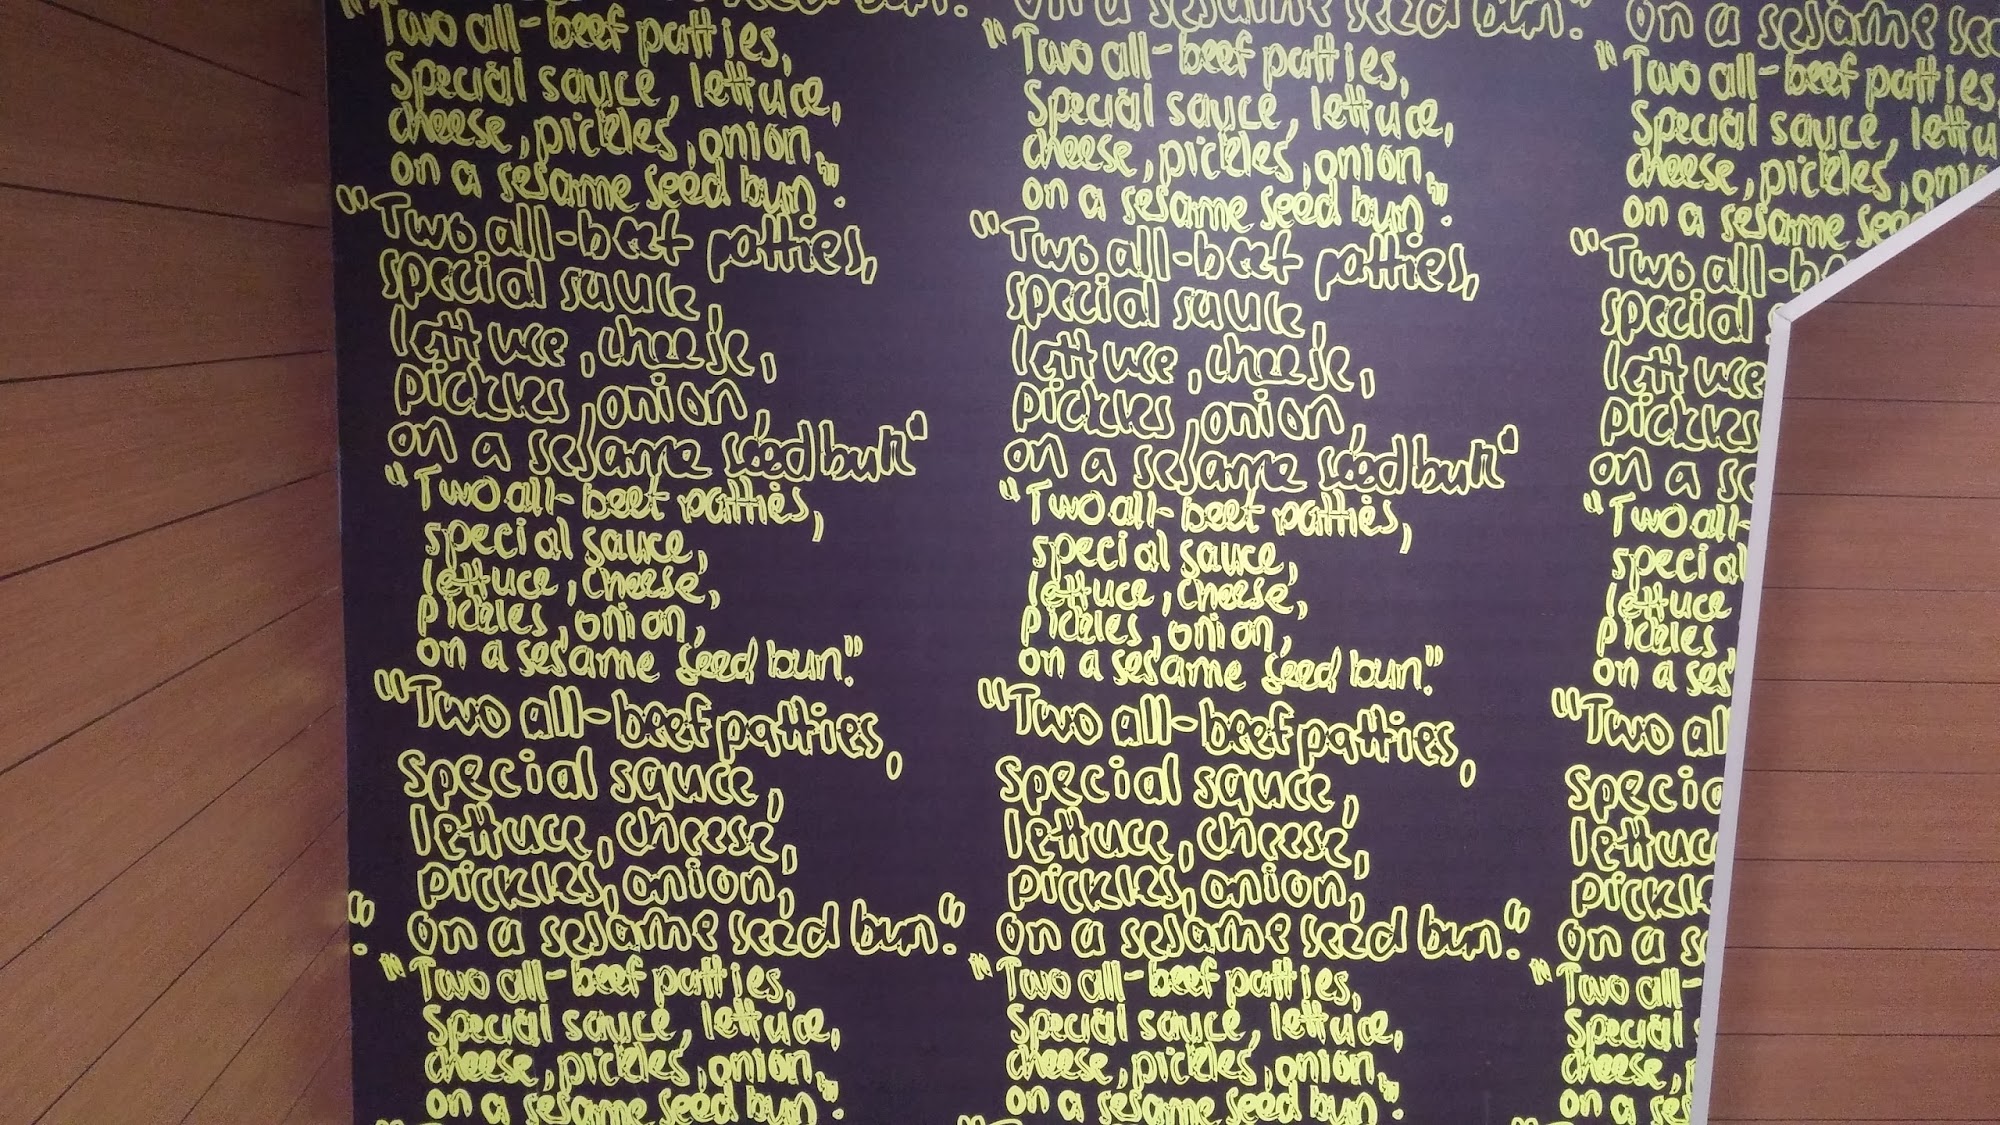 seed bun."
"Two all-beef patties,
special sauce, lettuce,
cheese, pickles, onion,
on a sesame seed bun".
"Two all-beef patties,
special sauce,
lettuce, cheese,
pickles, onion,
on a sesame seed bun"
"Two all-beef patties,
special sauce,
lettuce, cheese,
pickles, onion,
on a sesame seed bun."
"Two all-beef patties,
special sauce,
lettuce, cheese,
pickles, onion,
on a sesame seed bun."
"Two all-beef patties,
special sauce, lettuce,
cheese, pickles, onion,
on a sesame seed bun".
on a sesame seed bun."
"Two all-beef patties,
special sauce, lettuce,
cheese, pickles, onion,
on a sesame seed bun".
"Two all-beef patties,
special sauce,
lettuce, cheese,
pickles, onion,
on a sesame seed bun"
"Two all-beef patties,
special sauce,
lettuce, cheese,
pickles, onion,
on a sesame seed bun."
"Two all-beef patties,
special sauce,
lettuce, cheese,
pickles, onion,
on a sesame seed bun."
"Two all-beef patties,
special sauce, lettuce,
cheese, pickles, onion,
on a sesame seed bun".
on a sesame see
"Two all-beef patties,
special sauce, lettu
cheese, pickles, onio
on a sesame see
"Two all-be
special
lettuce
pickles
on a se
"Two all-
special
lettuce
pickles,
on a ses
"Two al
specia
lettuc
pickle
on a s
"Two all-
special s
cheese, p
on a ses